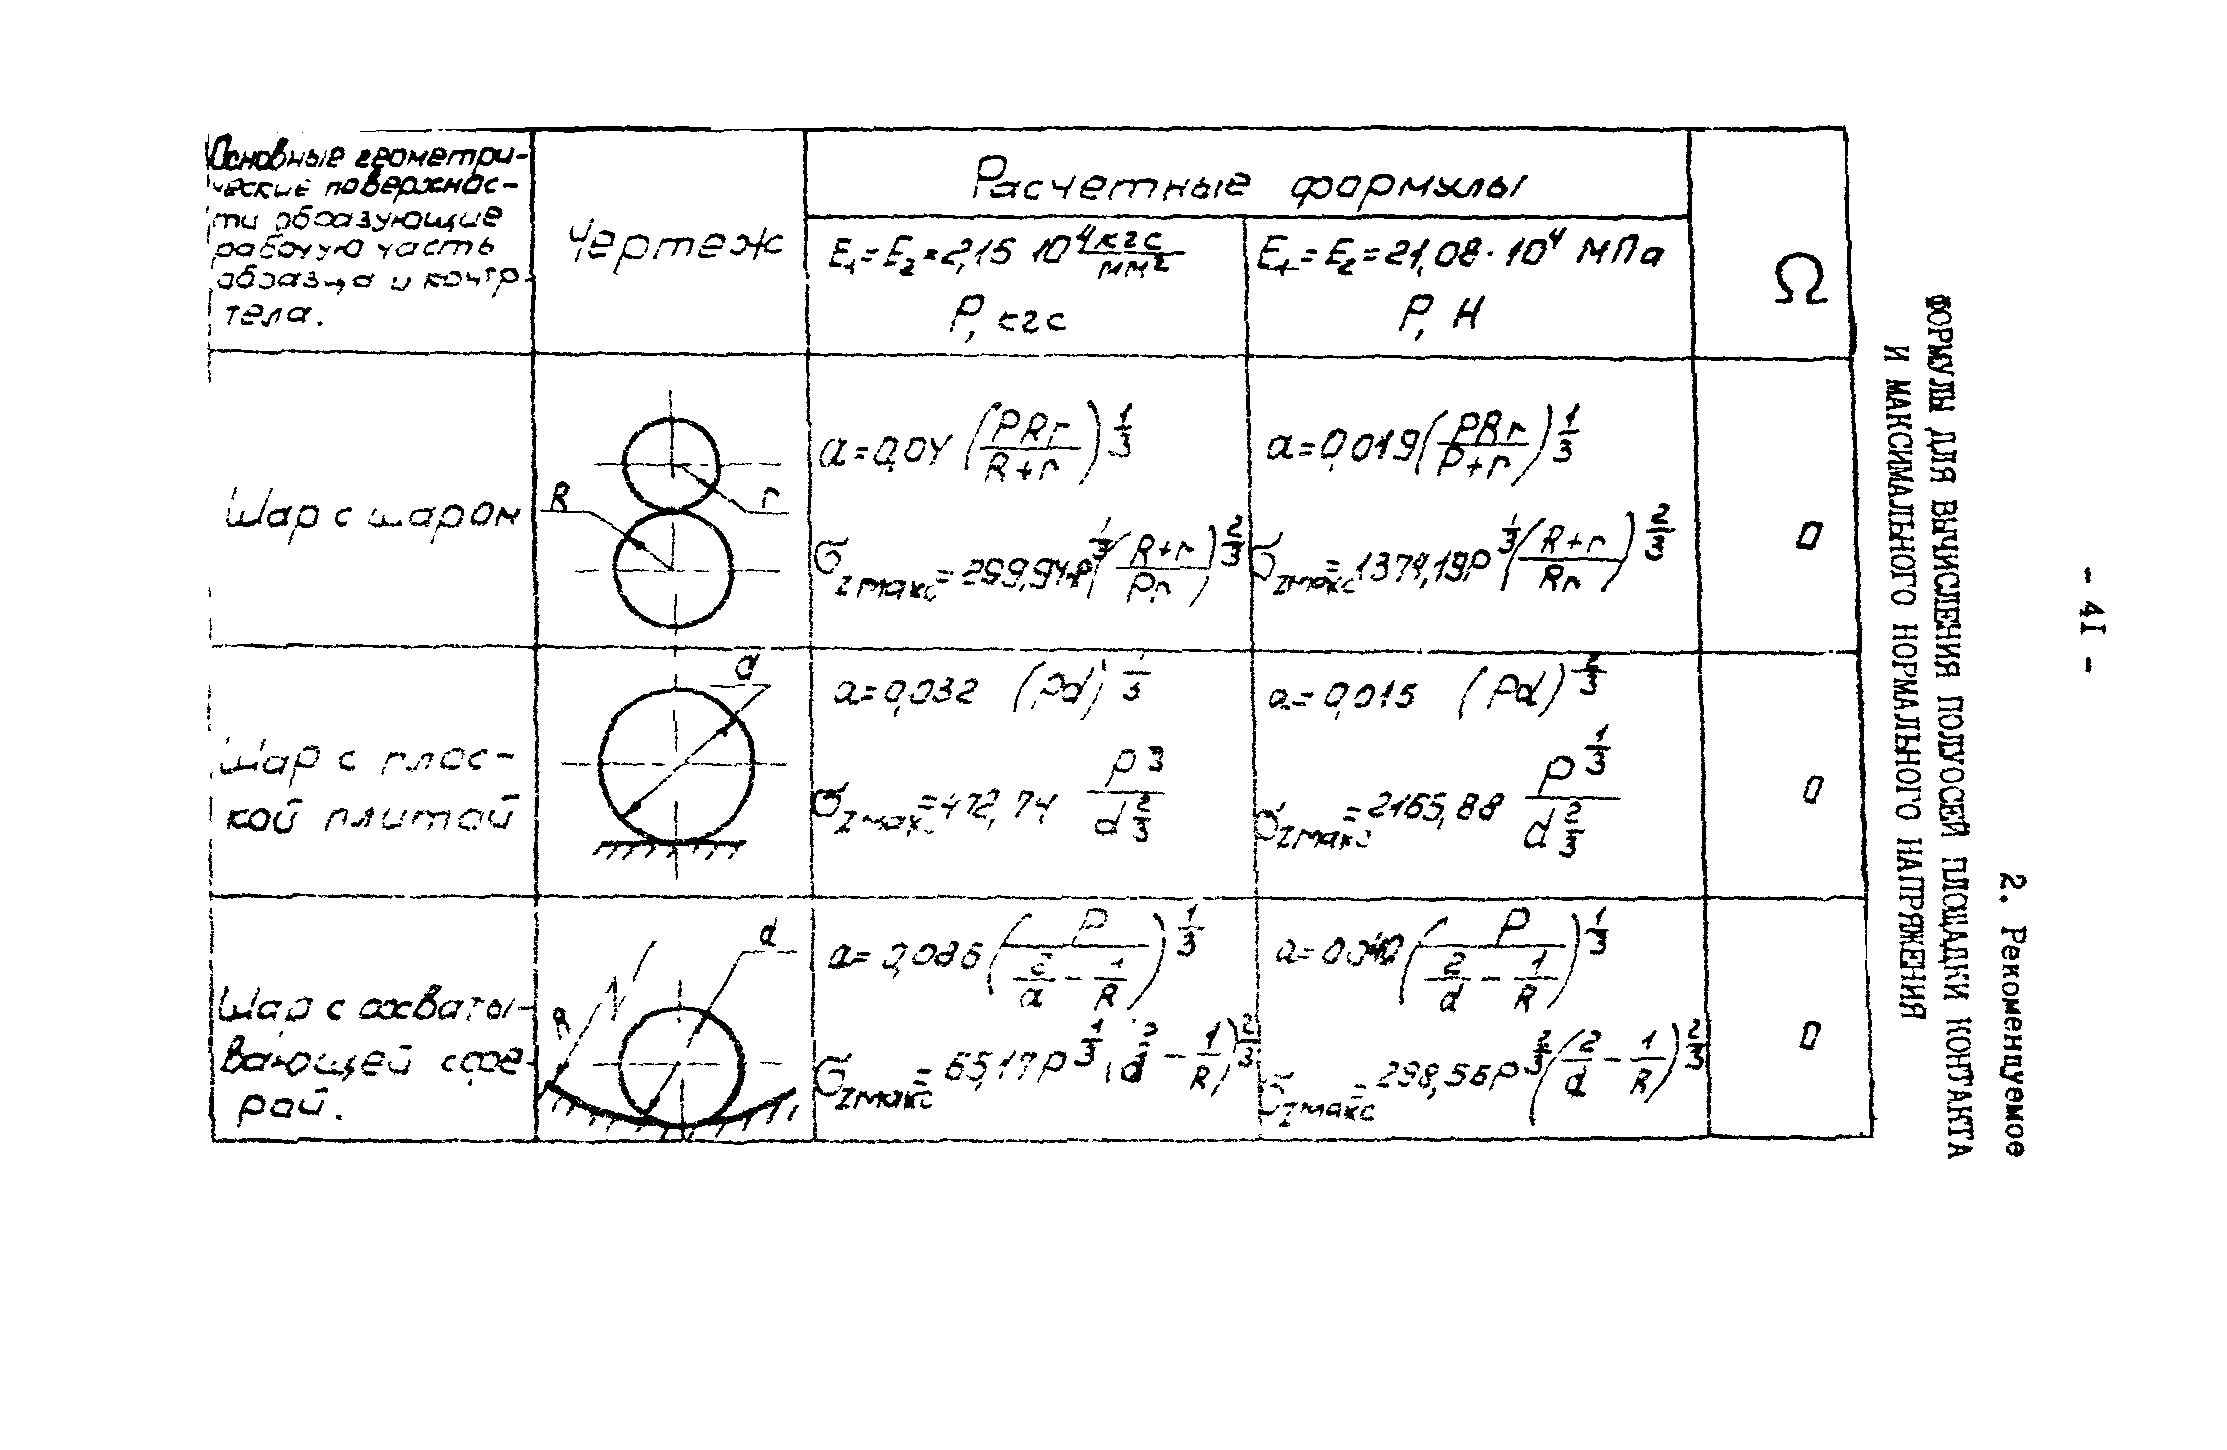 - 4I -
2. Рекомендуемое
ФОРМУЛЫ ДЛЯ ВЫЧИСЛЕНИЯ ПОЛУОСЕЙ ПЛОЩАДКИ КОНТАКТА
И МАКСИМАЛЬНОГО НОРМАЛЬНОГО НАПРЯЖЕНИЯ
Основные геометри-
ческие поверхнос-
ти образующие
рабочую часть
образца и контр-
тела.
Чертеж
Расчетные формулы
E₁=E₂=2,15 10⁴ кгс/мм²
P, кгс
E₁=E₂=21,08·10⁴ МПа
P, Н
Ω
Шар с шаром
R
r
a=0,04 (PRr/(R+r))^1/3
σzмакс=299,94P^1/3((R+r)/Pr)^2/3
a=0,019(PRr/(P+r))^1/3
σzмакс=1374,19P^1/3((R+r)/Rr)^2/3
0
Шар с плос-
кой плитой
d
a=0,032 (Pd)^1/3
σzмакс=472,74 P^3/d^2/3
a=0,015 (Pd)^1/3
σzмакс=2165,88 P^1/3/d^2/3
0
Шар с охваты-
вающей сфе-
рой.
R
d
a=0,086(P/(2/d-1/R))^1/3
σzмакс=65,17P^1/3(2/d-1/R)^2/3
a=(P/(2/d-1/R))^1/3
σzмакс=298,56P(2/d-1/R)^2/3
0